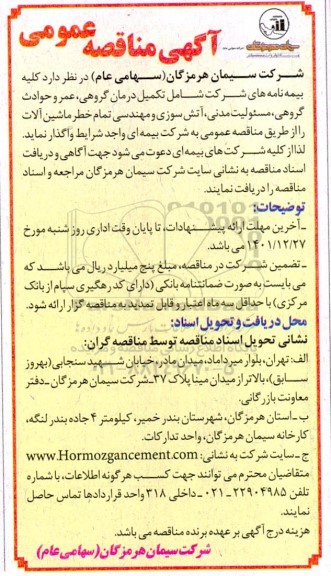 آگهی مناقصه عمومی
شرکت سیمان هرمزگان(سهامی عام) در نظر دارد کلیه
بیمه نامه های شرکت شامل تکمیل درمان گروهی، عمر و حوادث
گروهی، مسئولیت مدنی، آتش سوزی و مهندسی تمام خطر ماشین آلات
را از طریق مناقصه عمومی به شرکت بیمه ای واجد شرایط واگذار نماید.
لذا از کلیه شرکت های بیمه ای دعوت می شود جهت آگاهی و دریافت
اسناد مناقصه به نشانی سایت شرکت سیمان هرمزگان مراجعه و اسناد
مناقصه را دریافت نمایند.
توضیحات:
ـ آخرین مهلت ارائه پیشنهادات، تا پایان وقت اداری روز شنبه مورخ
۱۴۰۱/۱۲/۲۷ می باشد.
ـ تضمین شرکت در مناقصه، مبلغ پنج میلیارد ریال می باشد که
می بایست به صورت ضمانتنامه بانکی (دارای کد رهگیری سپام از بانک
مرکزی) با حداقل سه ماه اعتبار و قابل تمدید به مناقصه گزار ارائه شود.
محل دریافت و تحویل اسناد:
نشانی تحویل اسناد مناقصه توسط مناقصه گران:
الف: تهران، بلوار میرداماد، میدان مادر، خیابان شهید سنجابی (بهروز
سابق)، بالاتر از میدان مینا پلاک ۳۷ـ شرکت سیمان هرمزگان ـ دفتر
معاونت بازرگانی.
ب ـ استان هرمزگان، شهرستان بندر خمیر، کیلومتر ۴ جاده بندر لنگه،
کارخانه سیمان هرمزگان، واحد تدارکات.
ج ـ سایت شرکت به نشانی: www.Hormozgancement.com
متقاضیان محترم می توانند جهت کسب هر گونه اطلاعات، با شماره
تلفن ۲۲۹۰۴۹۸۵ـ۰۲۱ـ داخلی ۳۱۸ واحد قراردادها تماس حاصل
نمایند.
هزینه درج آگهی بر عهده برنده مناقصه می باشد.
شرکت سیمان هرمزگان (سهامی عام)